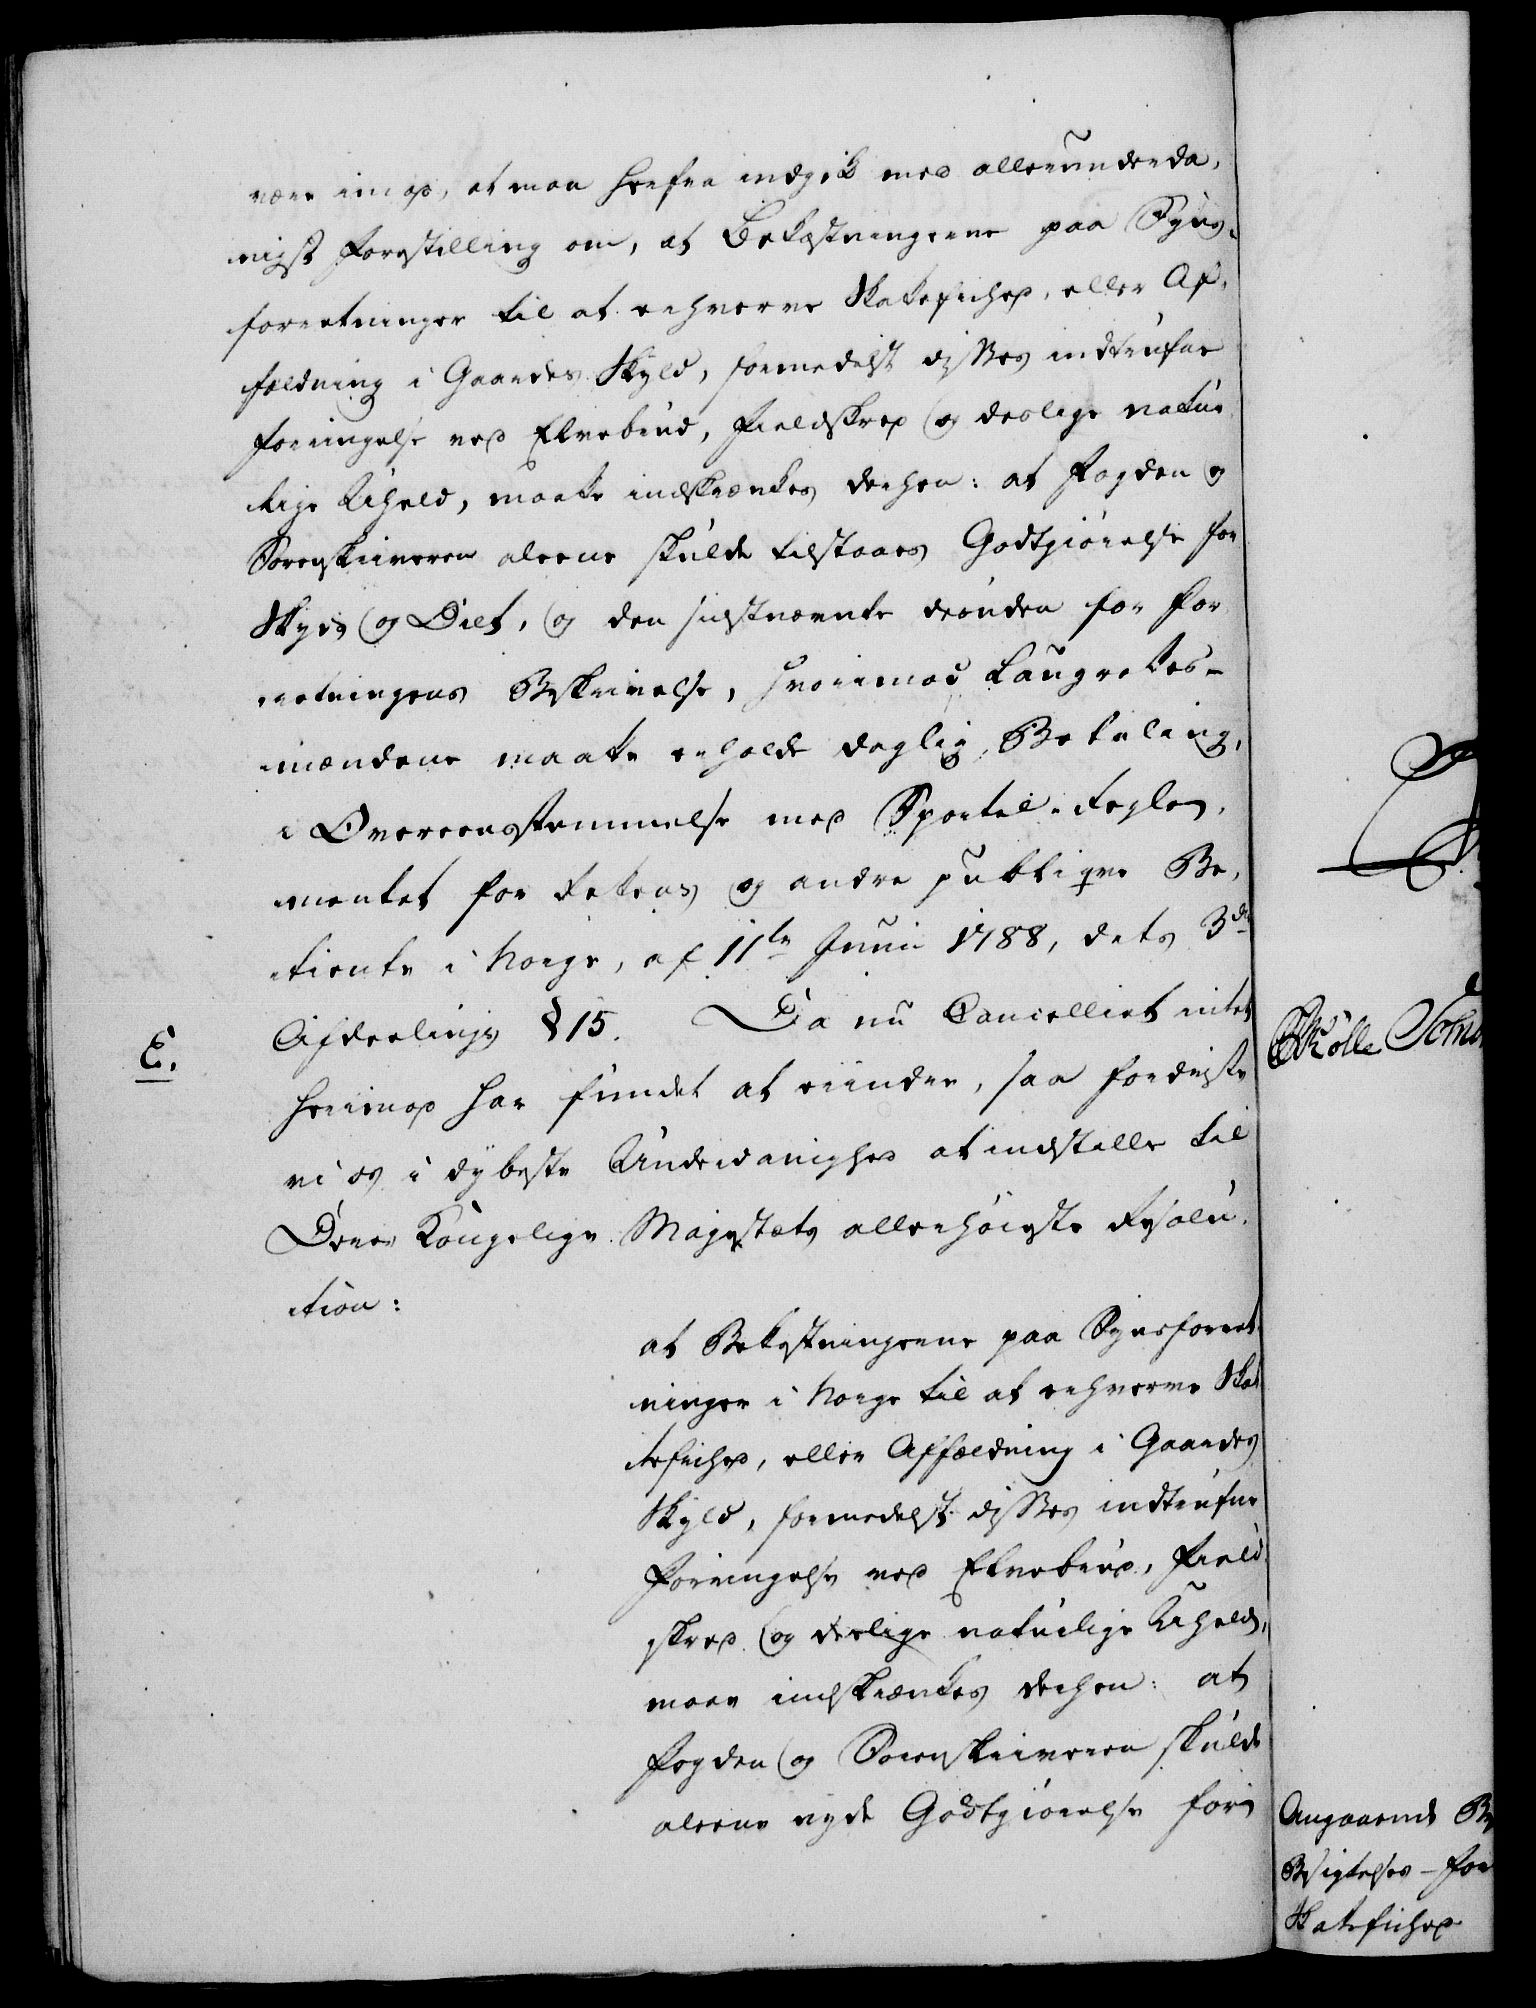 være imod, at man herfra indgik med allerunderda-
nigst Forestilling om, at Bekostningerne paa Syns-
forretninger til at erhverve Skattefrihed, eller Af-
fældning i Gaardes Skyld, formedelst disses indtrufne
Forringelse ved Elvebrud, Fieldskred og deslige natur-
lige Uheld, maatte indskrænkes derhen: at Fogden og
Sorenskriveren aleene skulde tilstaaes Godtgiörelse for
Skyds og Diet, og den sidstnævnte desuden for For-
retningens Beskrivelse, hvorimod Laugrettes-
mændene maatte erholde daglig Betaling,
i Overeensstemmelse med Sportel-Regle-
mentet for Rettens og andre publiqve Be-
tiente i Norge, af 11te Junii 1788, dets 3die
Afdeelings §15. Da nu Cancelliet intet
E.
herimod har fundet at erindre, saa fordriste
vi os i dybeste Underdanighed at indstille til
Deres Kongelige Majestæts allerhöieste Resolu-
tion:
at Bekostningerne paa Synsforret-
ninger i Norge til at erhverve Skat-
tefrihed, eller Affældning i Gaardes
Skyld, formedelst disses indtrufne
Forringelse ved Elvebrud, Field-
skred og deslige naturlige Uheld,
maae indskrænkes derhen: at
Fogden og Sorenskriveren skulde
aleene nyde Godtgiörelse for
Kölle
Angaaende
Besigtelses-For
Skattefrihed